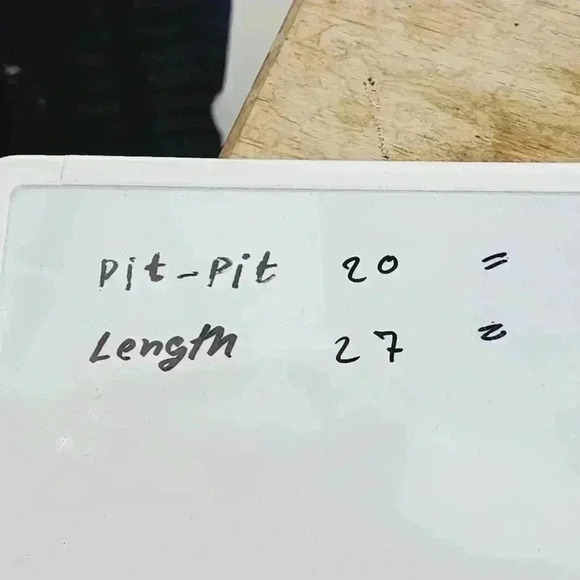 Pit-Pit 20 =
Length 27 =